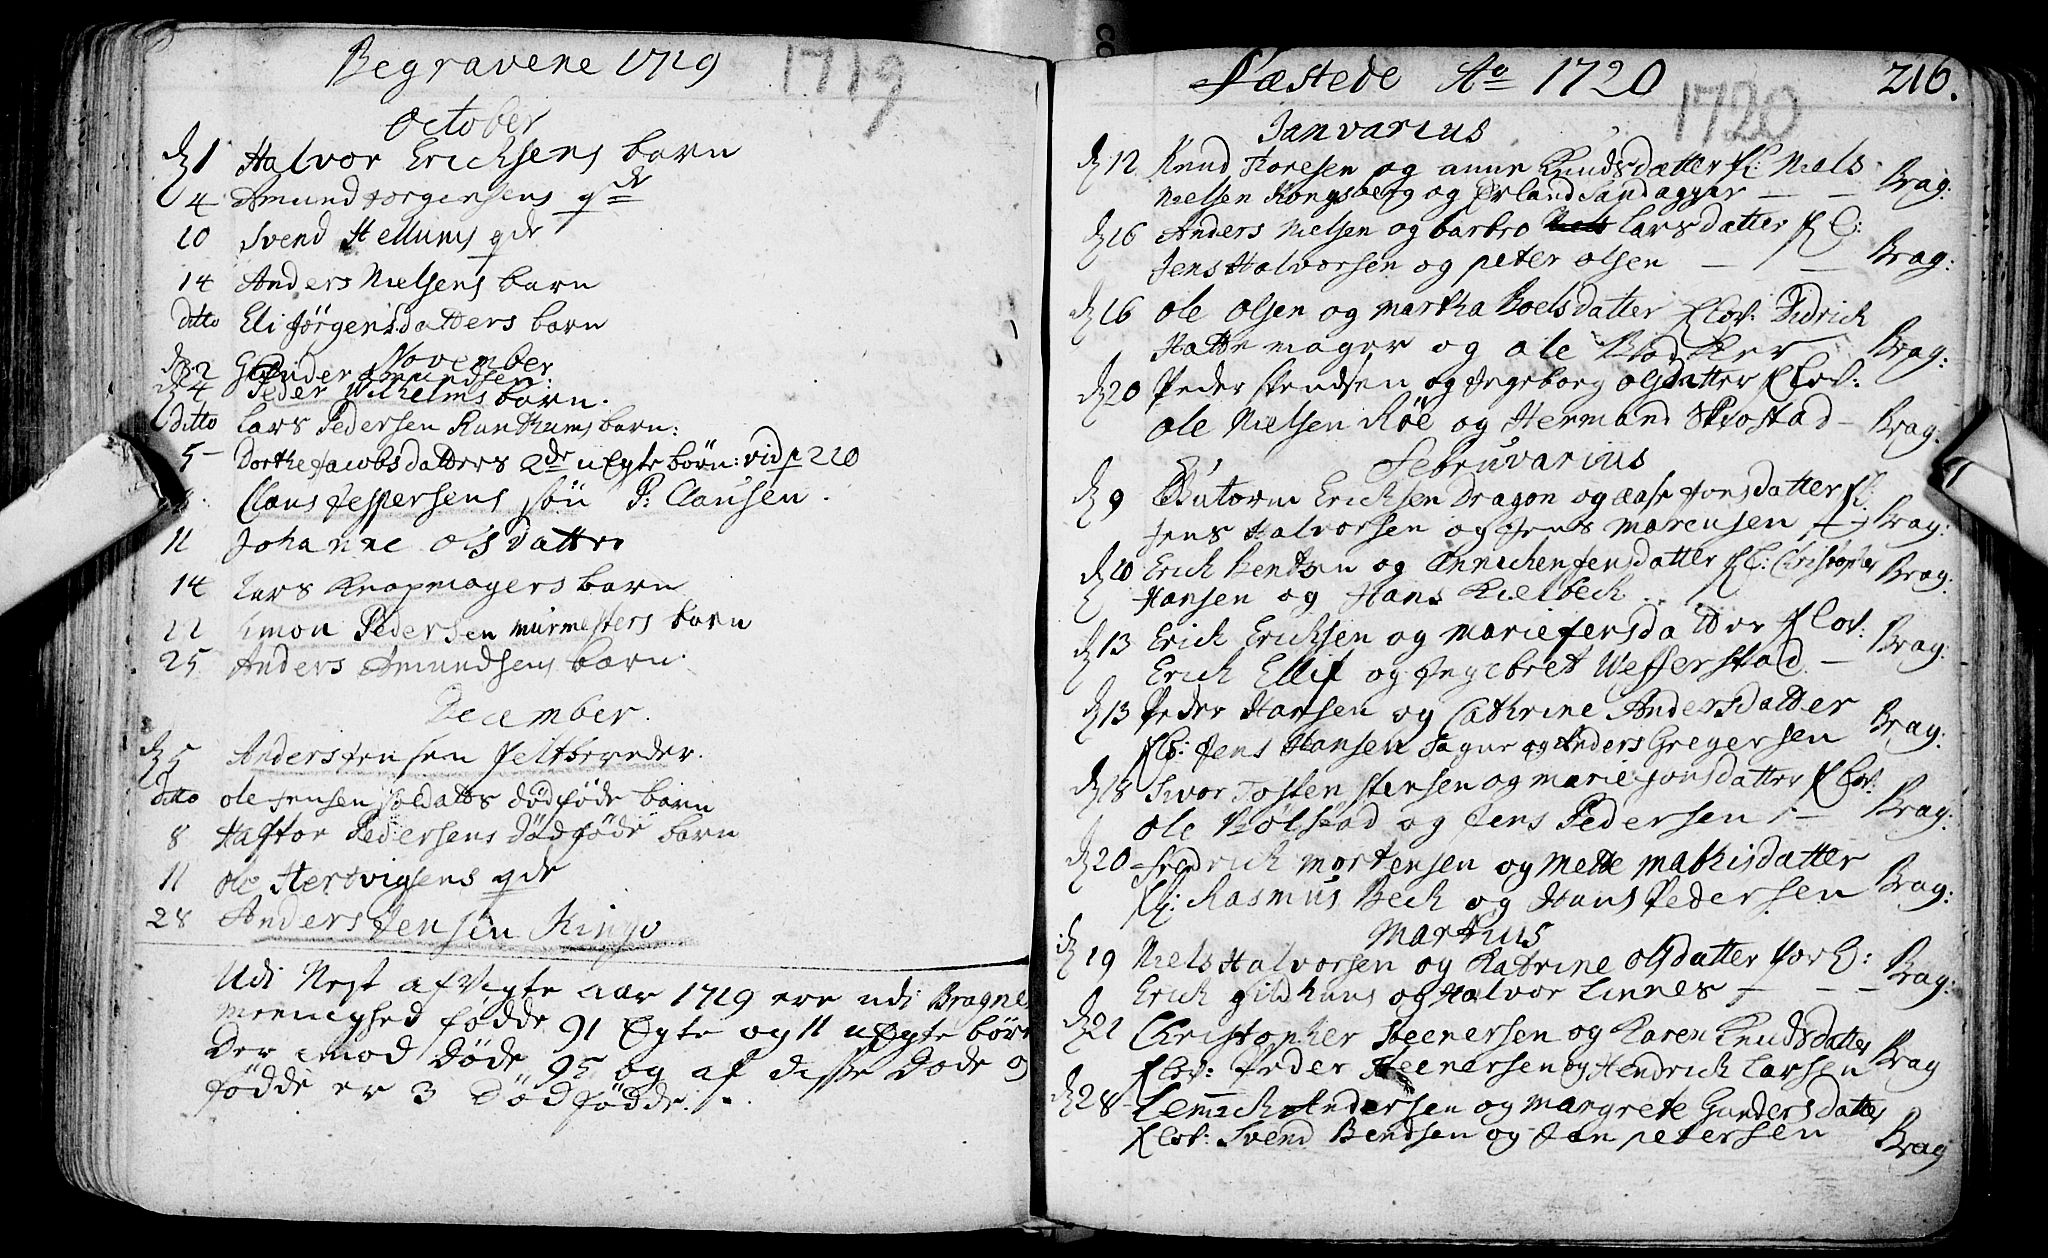 Begravene 1719 1719
October
d 1 Halvor Ericksens barn
4 Amund Jorgensens qde
10 Svend Hellums qde
14 Anders Nielsens barn
ditto Eli Jörgensdatters barn
November
d 2 Gunder Amundsen:
d 4 Peder Wilhelms barn.
ditto Lars Pedersen Runthums barn:
5 Dorthe Jacobsdatters 2de uEgte börn: vid p 220
Claus Jespersens sön P: Clausen.
11 Johanne olsdatter
14 Lars Knapmagers barn
22 Simon Pedersen murmesters barn
25 Anders Amundsens barn.
December.
d 5 Anders Jensen feltbereder.
ditto ole Jensen soldatts dödföde barn
8 Haftor Pedersens Dödföde barn
11 ole Hertvigsens qde
28 Anders Jensen Ringo
Udi Nest afvigte aar 1719 ere udi Bragnes
menighed födde 91 Egte og 11 uEgte börn
der imod Döde 95 og af disse Dode o
födde er 3 Dödfödde.
Fæstede Ao 1720 1720 216.
Janvarius
d 12 Knud Toresen og anne Knudsdatter fl: Niels
Nielsen Kongsberg og Erland Sandager — — Brag:
d 16 Anders Nielsen og barbro Larsdatter fl:
Jens Halvorsen og peter olsen — — Brag:
d 16 ole olsen og martha Roelsdatter flov: Didrich
Hattemager og ole Bödker Brag:
d 20 Peder svendsen og Ingeborg olsdatter flov:
ole Nielsen Röe og Hermand Skiostad — Brag.
Februvarius
d 9 Gutorm Ericksen Dragon og aase Jonsdatter fl:
Jens Halvorsen og Jens marensen Brag:
d 10 Erich Bentsen og Annichen Jensdatter fl: Christopher
Hansen og Hans Kielbech Brag:
d 13 Erich Ericksen og marie Jensdatter flov:
Erich Ellif og Ingebret Wefferstad — Brag:
d 13 Peder Hansen og Cathrine Andersdatter
flo: Jens Hansen Sagur og Anders Gregersen Brag:
d 18 Iver Tostenstensen og marie Jonsdatter flov:
ole Bölstad og Jens Pedersen — Brag:
d 20 Fredrich mortensen og Mette mathisdatter
fl: Rasmus Bech og Hans Pedersen Brag:
Martius
d 19 Niels Halvorsen og Katrine olsdatter forl:
Erich Gildhuus og Halvor Linnes — — Brag:
d 21 Christopher Steenersen og Karen Knudsdatter
flov: Peder Steenersen og Hendrich Larsen Brag
d 28 Lemmich Andersen og Margrete Gundersdatter
flov: Svend Bendsen og Jan petersen Brag